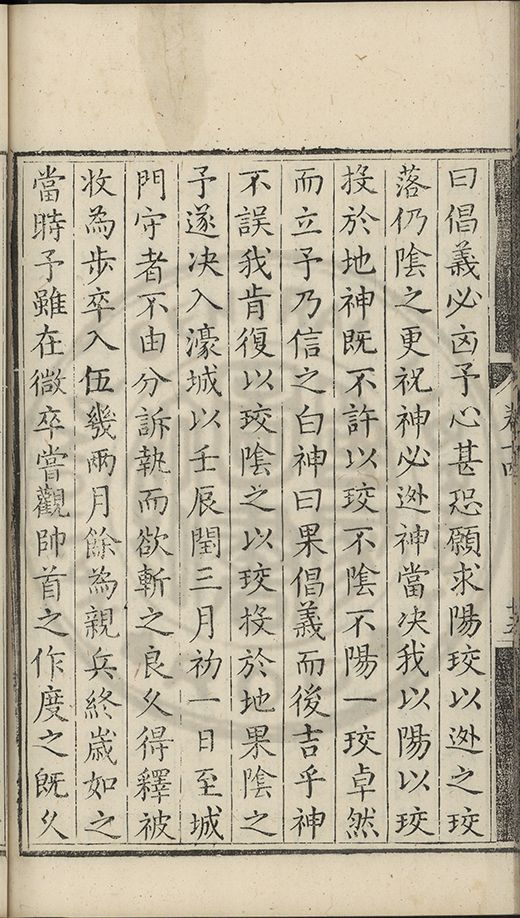 曰倡義必凶予心甚恐願求陽珓以迯之珓
落仍隂之更祝神必迯神當决我以陽以珓
投於地神既不許以珓不隂不陽一珓卓然
而立予乃信之白神曰果倡義而後吉乎神
不誤我肯復以珓隂之以珓投於地果隂之
予遂决入濠城以壬辰閏三月初一日至城
門守者不由分訴執而欲斬之良乆得釋被
收為步卒入伍幾兩月餘為親兵終歳如之
當時予雖在微卒嘗觀帥首之作度之既乆